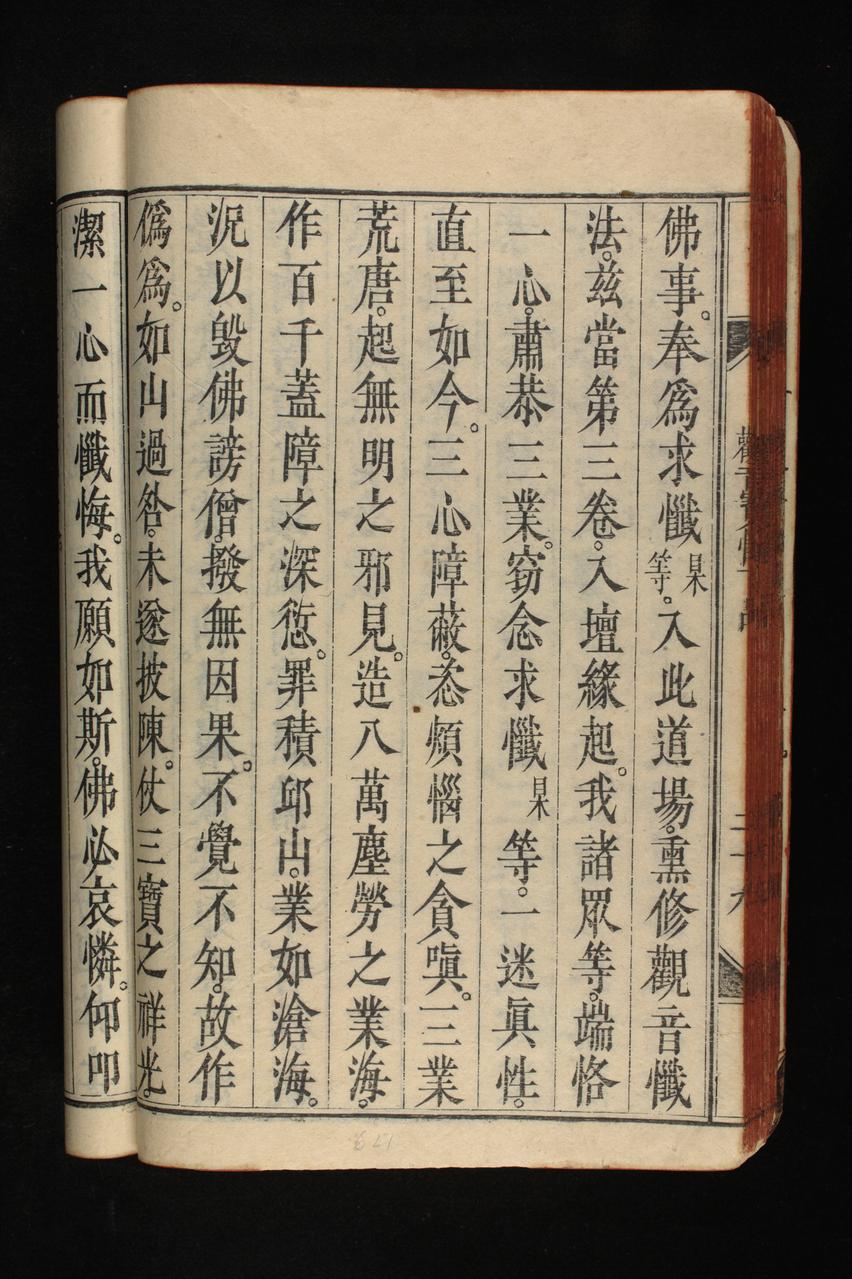 二十九
佛事。奉爲求懺某等。入此道場。熏修觀音懺
法。茲當第三卷。入壇緣起。我諸眾等。端恪
一心。肅恭三業。窃念求懺某等。一迷眞性。
直至如今。三心障蔽。恣煩惱之貪嗔。三業
荒唐。起無明之邪見。造八萬塵勞之業海。
作百千蓋障之深愆。罪積邱山。業如滄海。
況以毀佛謗僧。撥無因果。不覺不知。故作
僞爲。如山過咎。未遂披陳。仗三寶之祥光。
潔一心而懺悔。我願如斯。佛必哀憐。仰叩